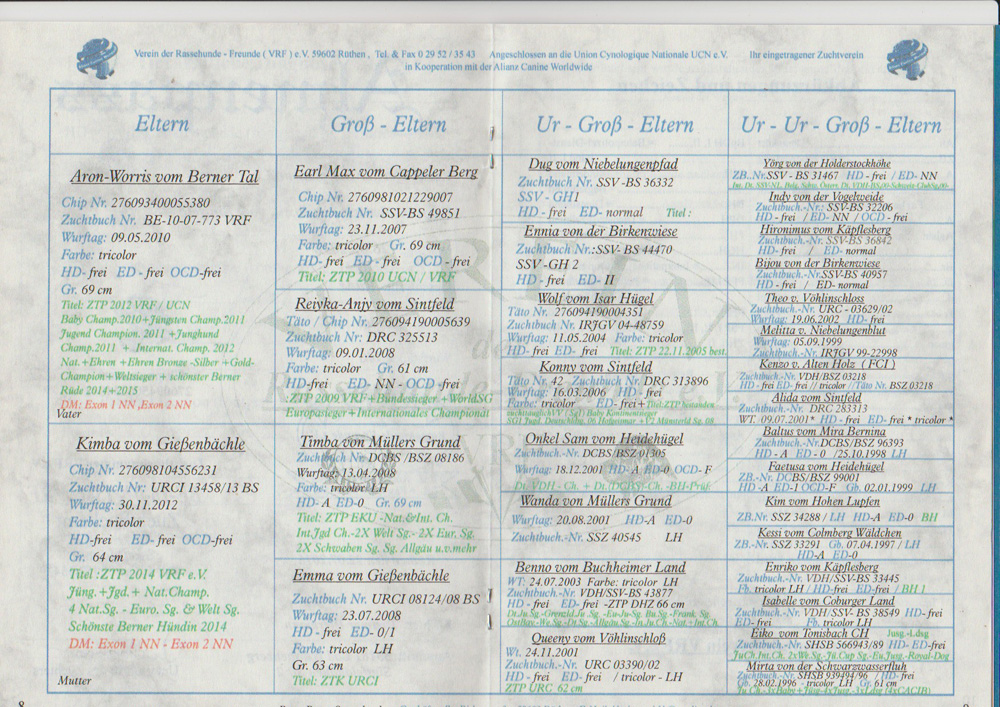 Verein der Rassehunde - Freunde ( VRF ) e.V. 59602 Rüthen , Tel. & Fax 0 29 52 / 35 43 Angeschlossen an die Union Cynologique Nationale UCN e.V. Ihr eingetragener Zuchtverein
in Kooperation mit der Alianz Canine Worldwide
Eltern
Aron-Worris vom Berner Tal
Chip Nr. 276093400055380
Zuchtbuch Nr. BE-10-07-773 VRF
Wurftag: 09.05.2010
Farbe: tricolor
HD- frei ED - frei OCD-frei
Gr. 69 cm
Titel: ZTP 2012 VRF / UCN
Baby Champ.2010+Jüngsten Champ.2011
Jugend Champion. 2011 +Junghund
Champ.2011 + .Internat. Champ. 2012
Nat.+Ehren+Ehren Bronze -Silber +Gold-
Champion+Weltsieger + schönster Berner
Rüde 2014+2015
DM: Exon 1 NN ,Exon 2 NN
Vater
Kimba vom Gießenbächle
Chip Nr. 276098104556231
Zuchtbuch Nr: URCI 13458/13 BS
Wurftag: 30.11.2012
Farbe: tricolor
HD-frei ED- frei OCD-frei
Gr. 64 cm
Titel :ZTP 2014 VRF e.V.
Jüng.+Jgd.+ Nat.Champ.
4 Nat.Sg. - Euro. Sg. & Welt Sg.
Schönste Berner Hündin 2014
DM: Exon 1 NN - Exon 2 NN
Mutter
Groß - Eltern
Earl Max vom Cappeler Berg
Chip Nr. 2760981021229007
Zuchtbuch Nr. SSV-BS 49851
Wurftag: 23.11.2007
Farbe: tricolor Gr. 69 cm
HD- frei ED - frei OCD - frei
Titel: ZTP 2010 UCN / VRF
Reiyka-Anjy vom Sintfeld
Täto / Chip Nr. 276094190005639
Zuchtbuch Nr: DRC 325513
Wurftag: 09.01.2008
Farbe: tricolor Gr. 61 cm
HD-frei ED- NN - OCD-frei
:ZTP 2009 VRF+Bundessieger.+WorldSG
Europasieger+Internationales Championat
Timba von Müllers Grund
Zuchtbuch Nr. DCBS /BSZ 08186
Wurftag: 13.04.2008
Farbe: tricolor LH
HD- A ED-0 Gr. 69 cm
Titel: ZTP EKU -Nat.&Int. Ch.
Int.Jgd Ch.-2X Welt Sg.- 2X Eur. Sg.
2X Schwaben Sg. Sg. Allgäu u.v.mehr
Emma vom Gießenbächle
Zuchtbuch Nr. URCI 08124/08 BS
Wurftag: 23.07.2008
HD - frei ED- 0/1
Farbe: tricolor LH
Gr. 63 cm
Titel: ZTK URCI
Ur - Groß - Eltern
Dug vom Niebelungenpfad
Zuchtbuch Nr. SSV -BS 36332
SSV - GH1
HD - frei ED- normal Titel :
Ennia von der Birkenwiese
Zuchtbuch Nr.:SSV- BS 44470
SSV -GH 2
HD - frei ED- II
Wolf vom Isar Hügel
Täto Nr. 276094190004351
Zuchtbuch Nr. IRJGV 04-48759
Wurftag: 11.05.2004 Farbe: tricolor
HD- frei ED- frei Titel: ZTP 22.11.2005 best.
Konny vom Sintfeld
Täto Nr. 42 Zuchtbuch Nr. DRC 313896
Wurftag: 16.03.2006 HD - frei
Farbe: tricolor ED-frei+Titel:ZTP bestanden
Onkel Sam vom Heidehügel
Zuchtbuch Nr. DCBS /BSZ 01305
Wurftag: 18.12.2001 HD- A ED-0 OCD- F
Dt. VDH - Ch. + Dt.(DCBS)-Ch. -BH-Prüf.
Wanda von Müllers Grund
Wurftag: 20.08.2001 HD-A ED-0
Zuchtbuch-Nr. SSZ 40545 LH
Benno vom Buchheimer Land
WT. 24.07.2003 Farbe: tricolor LH
Zuchtbuch-Nr. VDH/SSV-BS 43877
HD - frei ED - frei -ZTP DHZ 66 cm
Queeny vom Vöhlinschloß
Wt. 24.11.2001
Zuchtbuch.-Nr. URC 03390/02
HD - frei ED - frei / tricolor - LH
ZTP URC 62 cm
Ur - Ur - Groß - Eltern
Yörg von der Holderstockhöhe
ZB..Nr.SSV - BS 31467 HD - frei / ED- NN
Indy von der Vogelweide
Zuchtbuch.-Nr.: SSV-BS 32206
HD - frei / ED- NN / OCD - frei
Hironimus vom Käpflesberg
Zuchtbuch.-Nr. SSV-BS 36842
HD - frei / ED- normal
Bijou von der Birkenwiese
Zuchtbuch.-Nr.SSV-BS 40957
HD - frei / ED- normal
Theo v. Vöhlinschloss
Zuchtbuch.-Nr. URC - 03629/02
Wurftag: 19.06.2002 HD- frei
Melitta v. Niebelungenblut
Wurftag: 05.09.1999
Zuchtbuch.-Nr. IRJGV 99-22998
Kenzo v. Alten Holz ( FCI )
Zuchtbuch.-Nr. VDH/BSZ 03218
HD - frei ED- frei / / tricolor / Täto Nr. BSZ 03218
Alida vom Sintfeld
Zuchtbuch.-Nr. DRC 283313
WT. 09.07.2001* HD - frei ED- frei * tricolor *
Baltus vom Mira Bernina
Zuchtbuch.-Nr.DCBS/BSZ 96393
HD - A ED - 0 /25.10.1998 LH
Faetusa vom Heidehügel
ZB.-Nr. DCBS/BSZ 99001
HD -A ED-1 OCD-F Gb. 02.01.1999 LH
Kim vom Hohen Lupfen
ZB.Nr. SSZ 34288 / LH HD-A ED-0 BH
Kessi vom Colmberg Wäldchen
ZB.-Nr. SSZ 33291 Gb. 07.04.1997 / LH
HD-A ED-0
Enriko vom Käpflesberg
Zuchtbuch.-Nr. VDH/SSV-BS 33445
Fb. tricolor LH / HD-frei ED- frei / BH 1
Isabelle vom Coburger Land
Zuchtbuch.-Nr. VDH/ SSV- BS 38549 HD- frei
ED- frei Fb. tricolor LH
Eiko vom Tonisbach CH Jusg.-Ldsg
Zuchtbuch.-Nr. SHSB S66943/89 HD- ED-frei
Mirta von der Schwarzwasserfluh
Zuchtbuch.-Nr. SHSB 939494/96 / HD- frei
Gb. 28.02.1996 - tricolor LH Gr. 61 cm
8